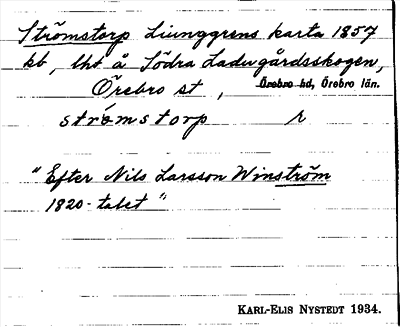 Strömstorp Ljunggrens karta 1857
kb, lht å Södra Ladugårdsskogen,
Örebro st, Örebro hd, Örebro län.
strómstorp r
"Efter Nils Larsson Winström
1820-talet"
KARL-ELIS NYSTEDT 1934.